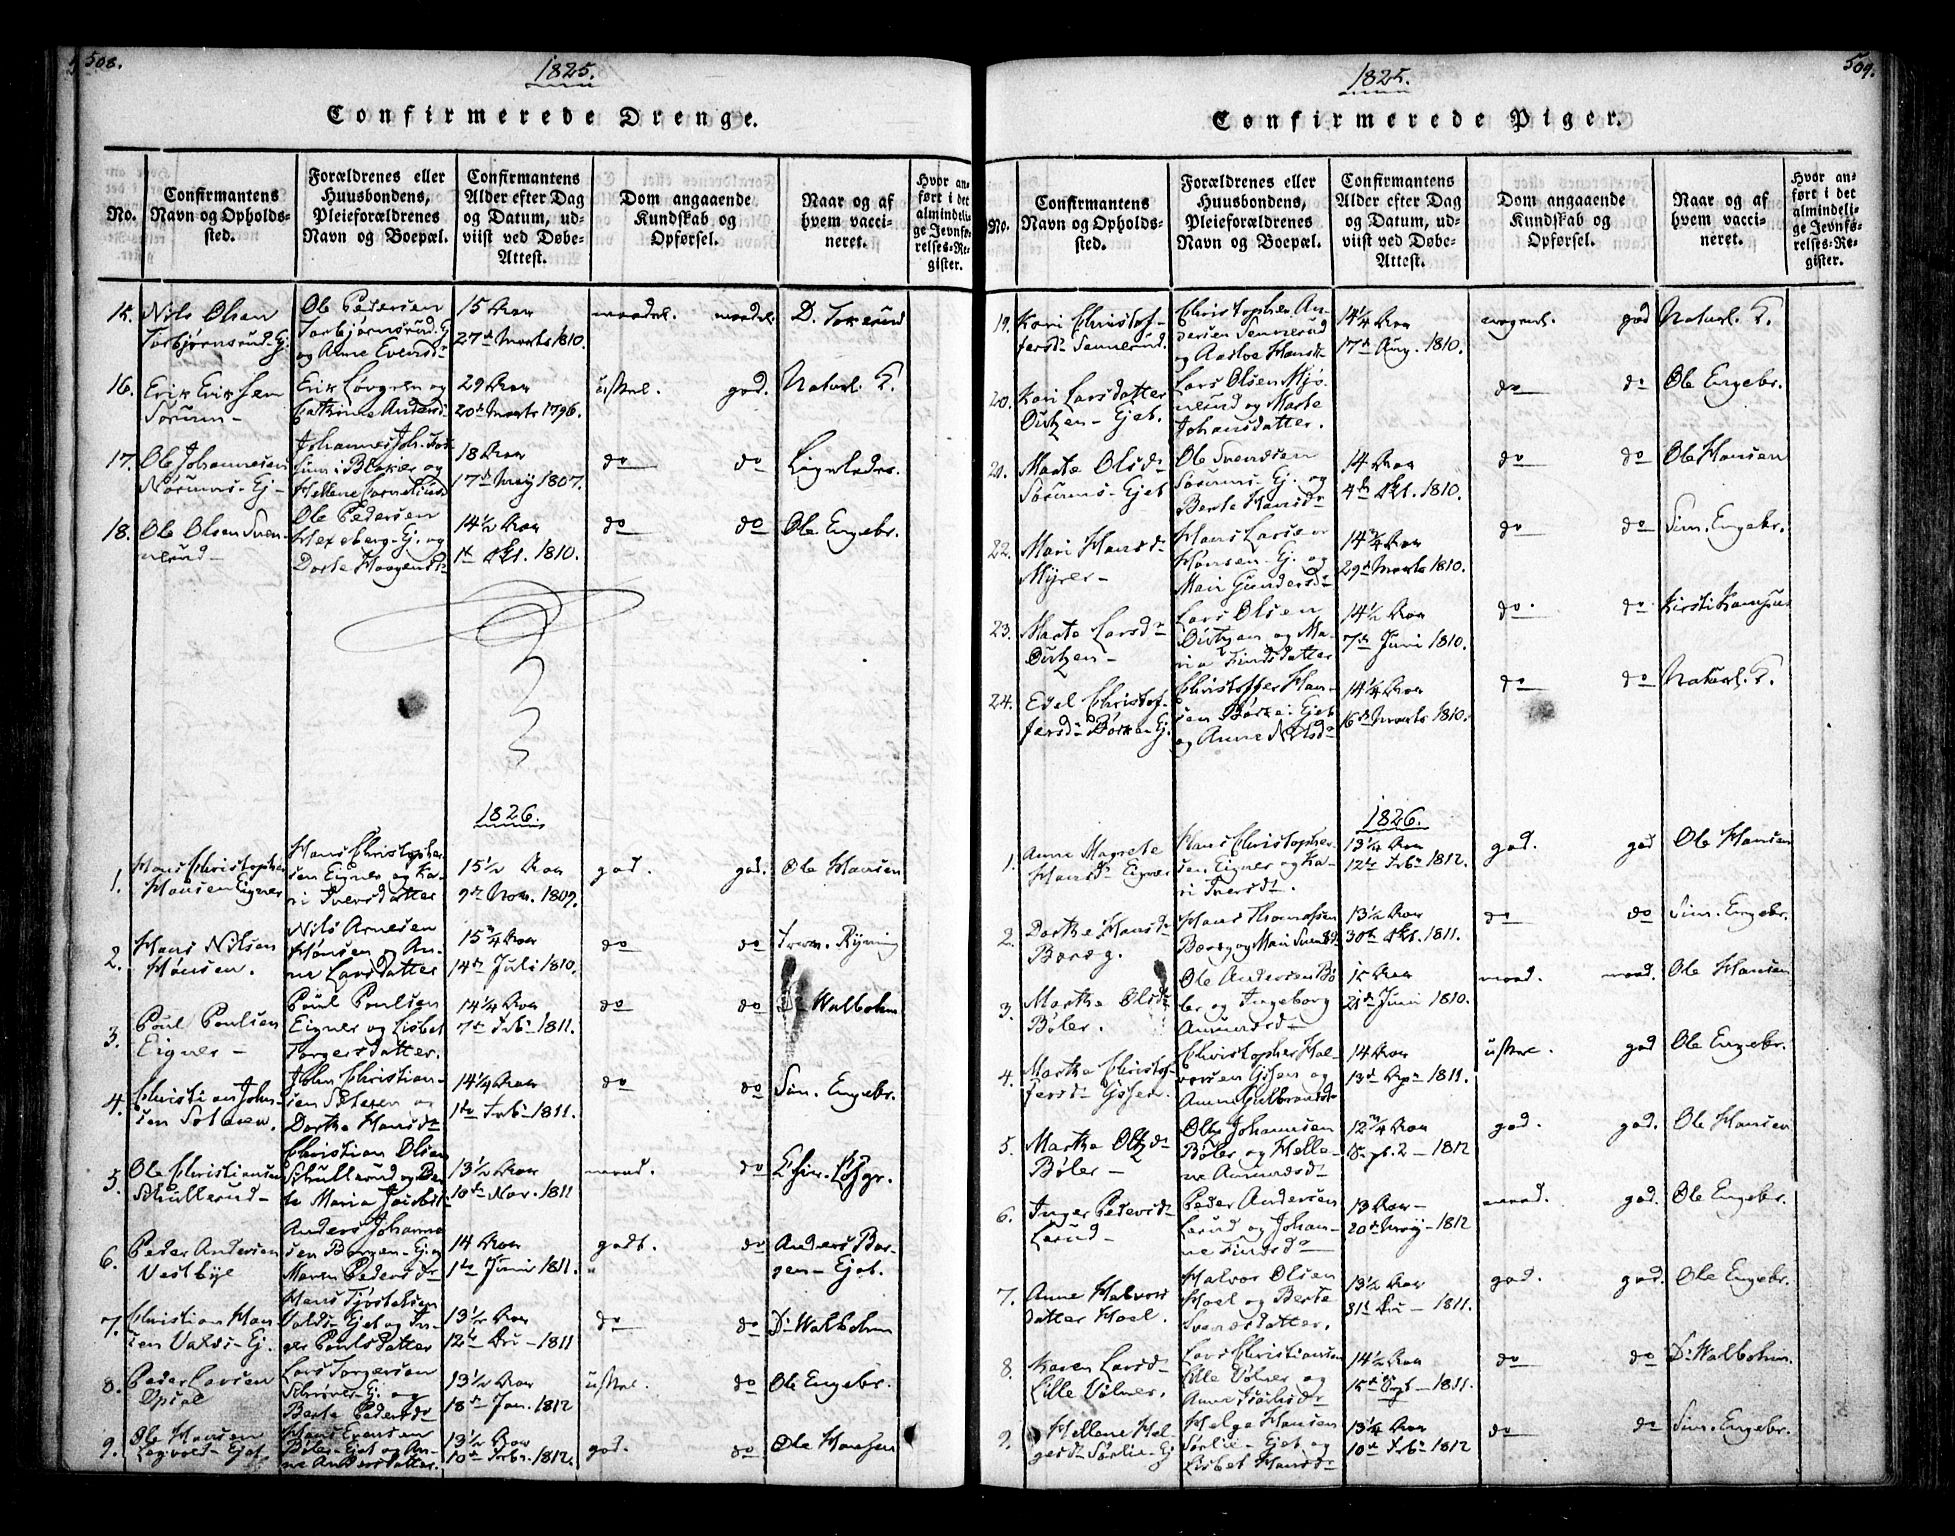 508.
1825.
Confirmerede Drenge.
No.
Confirmantens
Navn og Opholds-
sted.
Forældrenes eller
Huusbondens,
Pleieforældrenes
Navn og Boepæl.
Confirmantens
Alder efter Dag
og Datum, ud-
viist ved Døbe-
Attest.
Dom angaaende
Kundskab og
Opførsel.
Naar og af
hvem vacci-
neret.
Hvor an-
ført i det
almindeli-
ge Jevnfø-
relses-Re-
gister.
15. Nils Olsen
Torbjørnsrud-Ej.
Ole Pedersen
Torbjørnsrud-Ej.
og Anne Evensd-
15 Aar
27de Marts 1810.
maadel. maadel.
16. Erik Eriksen
Sørum-
Erik Løvgren og
Cathrine Andersd
29 Aar
20de Marts 1796.
uskel. god.
Naturl. K.
17. Ole Johannesen
Nørums-Ej-
Johannes Joh.
i Blakjer og
Hellene Corneliusd
18 Aar
17de Maj 1807.
do do
Ligeledes.
18. Ole Olsen Sven-
nerud-
Ole Pedersen
Hexeberg-Ej. og
Dorte Haagensd-
14½ Aar
1ste Okt. 1810.
do do
Ole Engebr.
1826.
1. Hans Christopher
Hansen Eigner
Hans Christopher-
sen Eigner og Ka-
ri Iversdatter
15½ Aar
9de Nov. 1809.
god. god.
Ole Hansen
2. Hans Nilsen
Hønsen.
Nils Arnesen
Hønsen og An-
ne Larsdatter
15¾ Aar
14de Juli 1810.
do do
Iver Ryning
3. Poul Poulsen
Eigner-
Poul Poulsen
Eigner og Lisbet
Torgersdatter.
14¼ Aar
7de Feb- 1811.
do do
Dr Walbohm
4. Christian John-
sen
John Christian-
sen og
Dorthe Hansd-
14¼ Aar
1ste Feb- 1811.
do do
Sim. Engebr.
5. Ole Christiansen
Skullerud-
Christian Olsen
Skullerud og Ber-
te Maria Jacobsd-
13½ Aar
10de Nov. 1811
maad. do
6. Peder Andersen
Vestbye
Anders Johanne
sen Borgen-Ej. og
Maren Pedersd-
14 Aar
1ste Juni 1811.
godt. do
Anders Bor-
gen-Ejet.
7. Christian Han
sen Valds-Ej.
Hans
Valds-Ejet og In-
ger Poulsdatter
13½ Aar
12te 1811
do do
Dr Walbohm
8. Peder Larsen
Opsal
Lars Torgersen
Skriver-Ej. og
Berte Pedersd-
13½ Aar
18de Jan. 1812
uskel. do
Ole Engebr.
9. Ole Hansen
Løgvold-Ejet
Hans Evensen
Bøler-Ejet og An-
ne Andersdatter.
13½ Aar
10de Feb. 1812.
god. do
Ole Hansen
509.
1825.
Confirmerede Piger.
No.
Confirmantens
Navn og Opholds-
sted.
Forældrenes eller
Huusbondens,
Pleieforældrenes
Navn og Boepæl.
Confirmantens
Alder efter Dag
og Datum, ud-
viist ved Døbe-
Attest.
Dom angaaende
Kundskab og
Opførsel.
Naar og af
hvem vacci-
neret.
Hvor an-
ført i det
almindeli-
ge Jevnfø-
relses-Re-
gister.
19. Kari Christof-
fersd- Sennerud.
Christopher An-
dersen Sennerud
og Aasloe Hansd-
14¼ Aar
17de Aug. 1810.
god
Naturl. K.
20. Kari Larsdatter
-Ejet.
Lars Olsen Mjø-
nerud og Marte
Johansdatter.
do do
Ole Engebr.
21. Marte Olsd-
Sørums-Ejet
Ole Svendsen
Sørums-Ej. og
Berte Hansd-
14 Aar
4de Okt. 1810.
do do
Ole Hansen
22. Mari Hansd-
Myrer-
Hans Larsen
Hønsen-Ej. og
Mari Gundersd-
14¾ Aar
29de Marts 1810.
do do
Sim. Engebr.
23. Marte Larsd-
Lars Olsen
og Ma-
ria Findsdatter
14½ Aar
7de Juni 1810.
do. do
Kirsti
24. Edel Christof-
fersd- Børke Ej.
Christoffer Han-
sen Børke-Ejet
og Anne Nilsd-
14¼ Aar
16de Marts 1810.
do do
Naturl. K.
1826.
1. Anne Magrete
Hansd- Eigner
Hans Christopher-
sen Eigner og Ka-
ri Iversd-.
13¼ Aar
12te Feb- 1812.
god. god
Ole Hansen
2. Dorthe Hansd-
Borøg.
Hans Thomassen
Borøg og Mari Svendsd-
13½ Aar
30te Okt. 1811.
do do
Sim. Engebr.
3. Marthe Olsd-
Bøler.
Ole Andersen Bø-
ler og Ingeborg
Amundsd-
15 Aar
21de Juni 1810.
maad. maad.
Ole Hansen
4. Marthe Christof-
fersd-
Christopher Hal-
vorsen og
Anne Gulbrandsd-
14 Aar
13de Apr- 1811.
uskel. god
Ole Engebr.
5. Marthe
Bøler-
Johannsen
Bøler og Helle-
ne Amundsd-
12¾ Aar
1812
god. god.
Ole Hansen
6. Inger Pedersd-
Lerud-
Peder Andersen
Lerud og Johan-
ne Findsd-
13 Aar-
20de Maj-1812
maad. god.
Ole Engebr.
7. Anne Halvors
datter Hoel.
Halvor Olsen
Hoel og Berte
Svendsdatter.
13½ Aar
31te -1811.
god. god.
Ole Engebr.
8. Karen Larsd-
Lille Vølner.
Lars Christiansen
Lille Vølner og
Anne
14½ Aar
15de -1811.
do do
Dr Walbohm.
9. Hellene Hel-
gesd- Sørlie-Ej
Helge Hansen
Sørlie-Ejet og
Lisbet Hansd-
13¼ Aar
10de Feb- 1812
do do
Sim. Engebr.